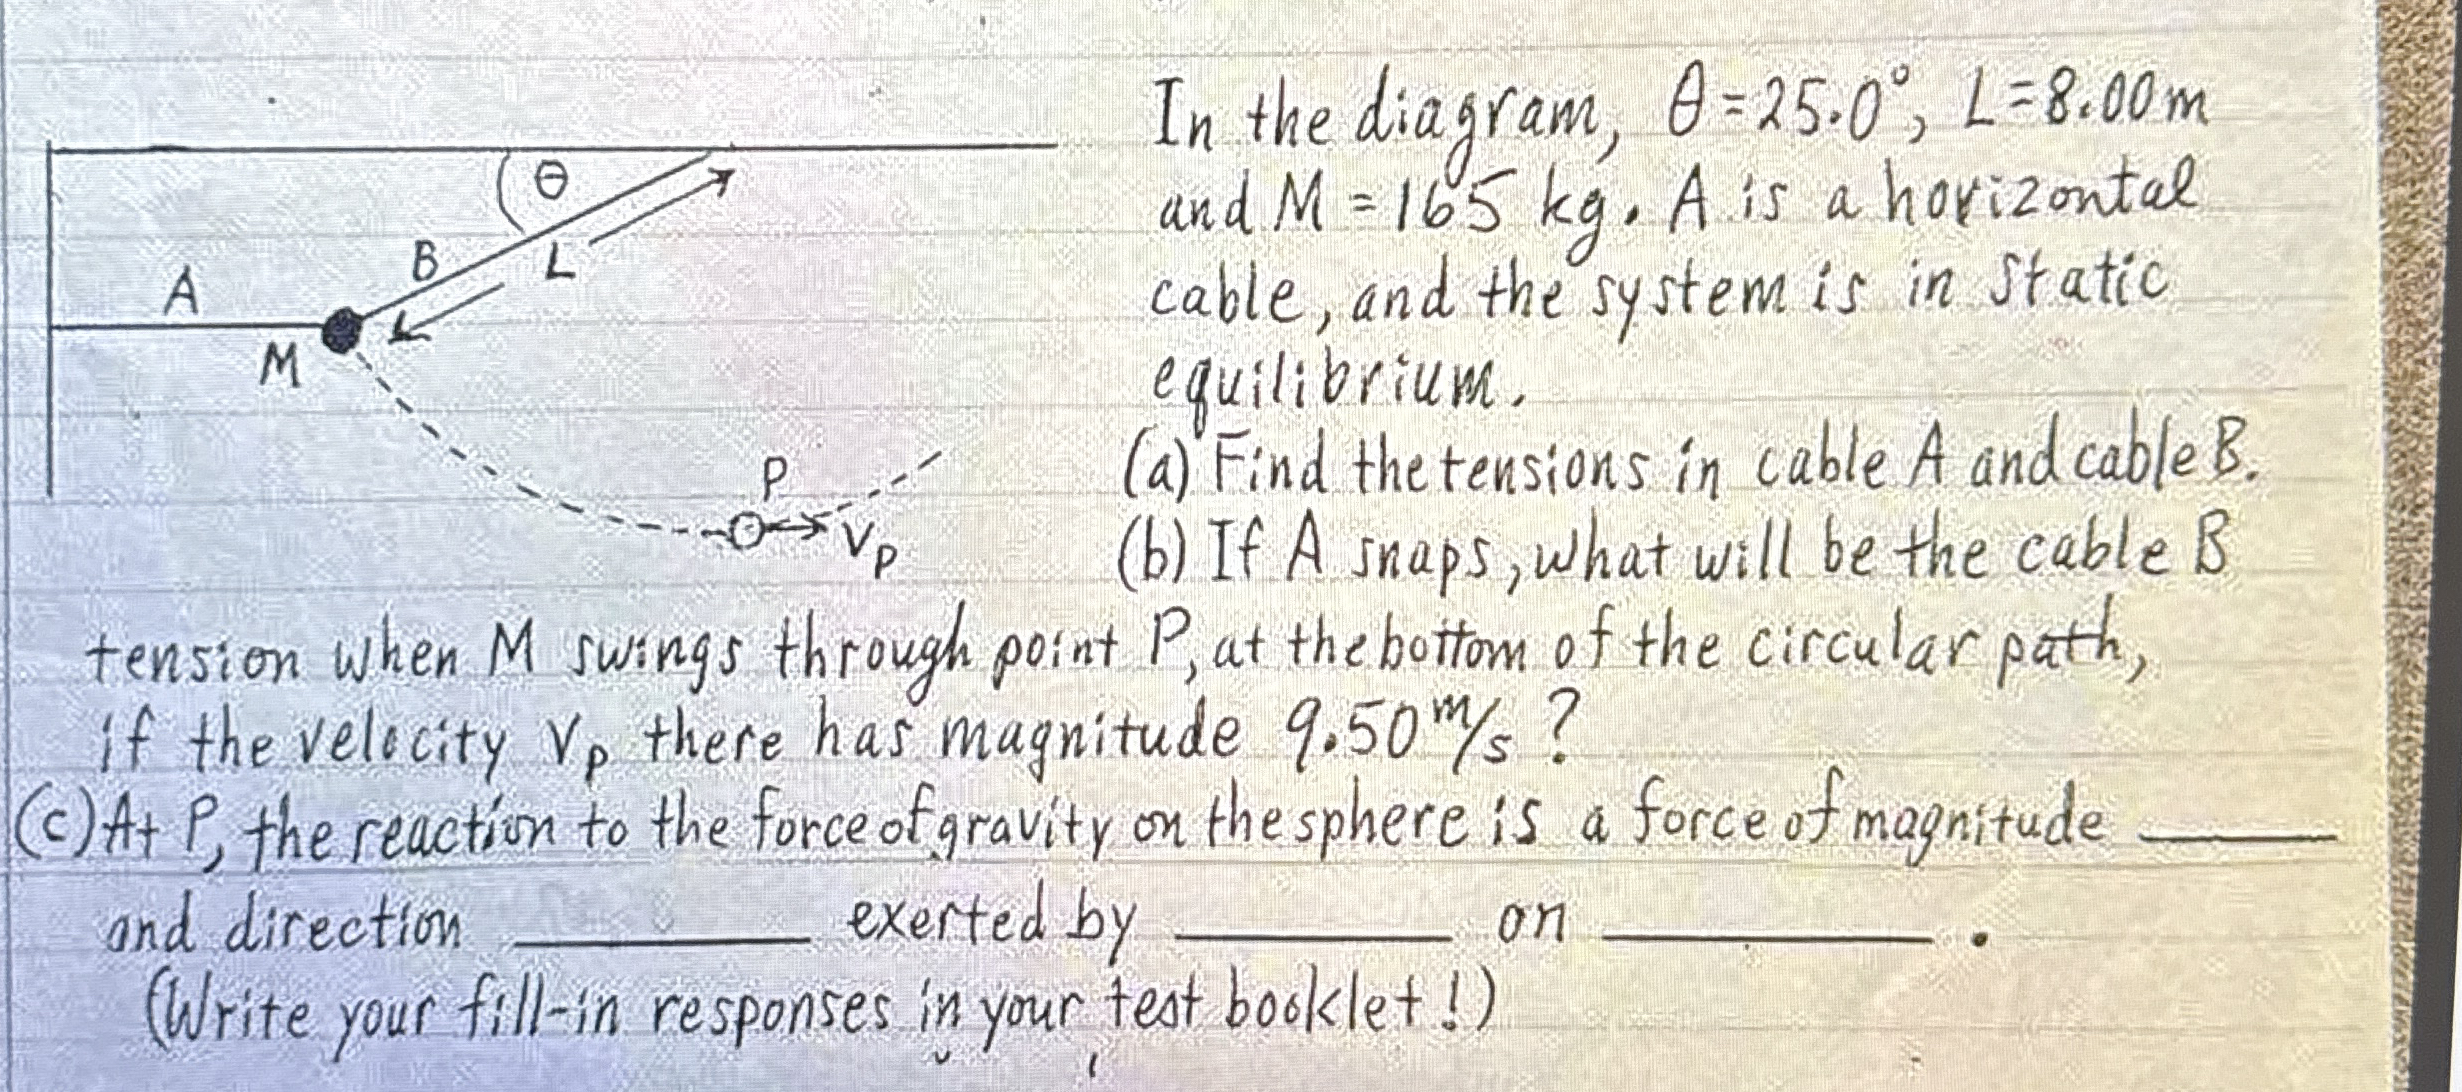 In the diagram, θ = 25.0°, L = 8.00 m
θ
and M = 165 kg. A is a horizontal
B
L
A
cable, and the system is in static
M
equilibrium.
(a) Find the tensions in cable A and cable B.
P
V_P
(b) If A snaps, what will be the cable B
tension when M swings through point P, at the bottom of the circular path,
if the velocity V_P there has magnitude 9.50 m/s ?
(c) At P, the reaction to the force of gravity on the sphere is a force of magnitude ______
and direction ______ exerted by ______ on ______ .
(Write your fill-in responses in your test booklet!)